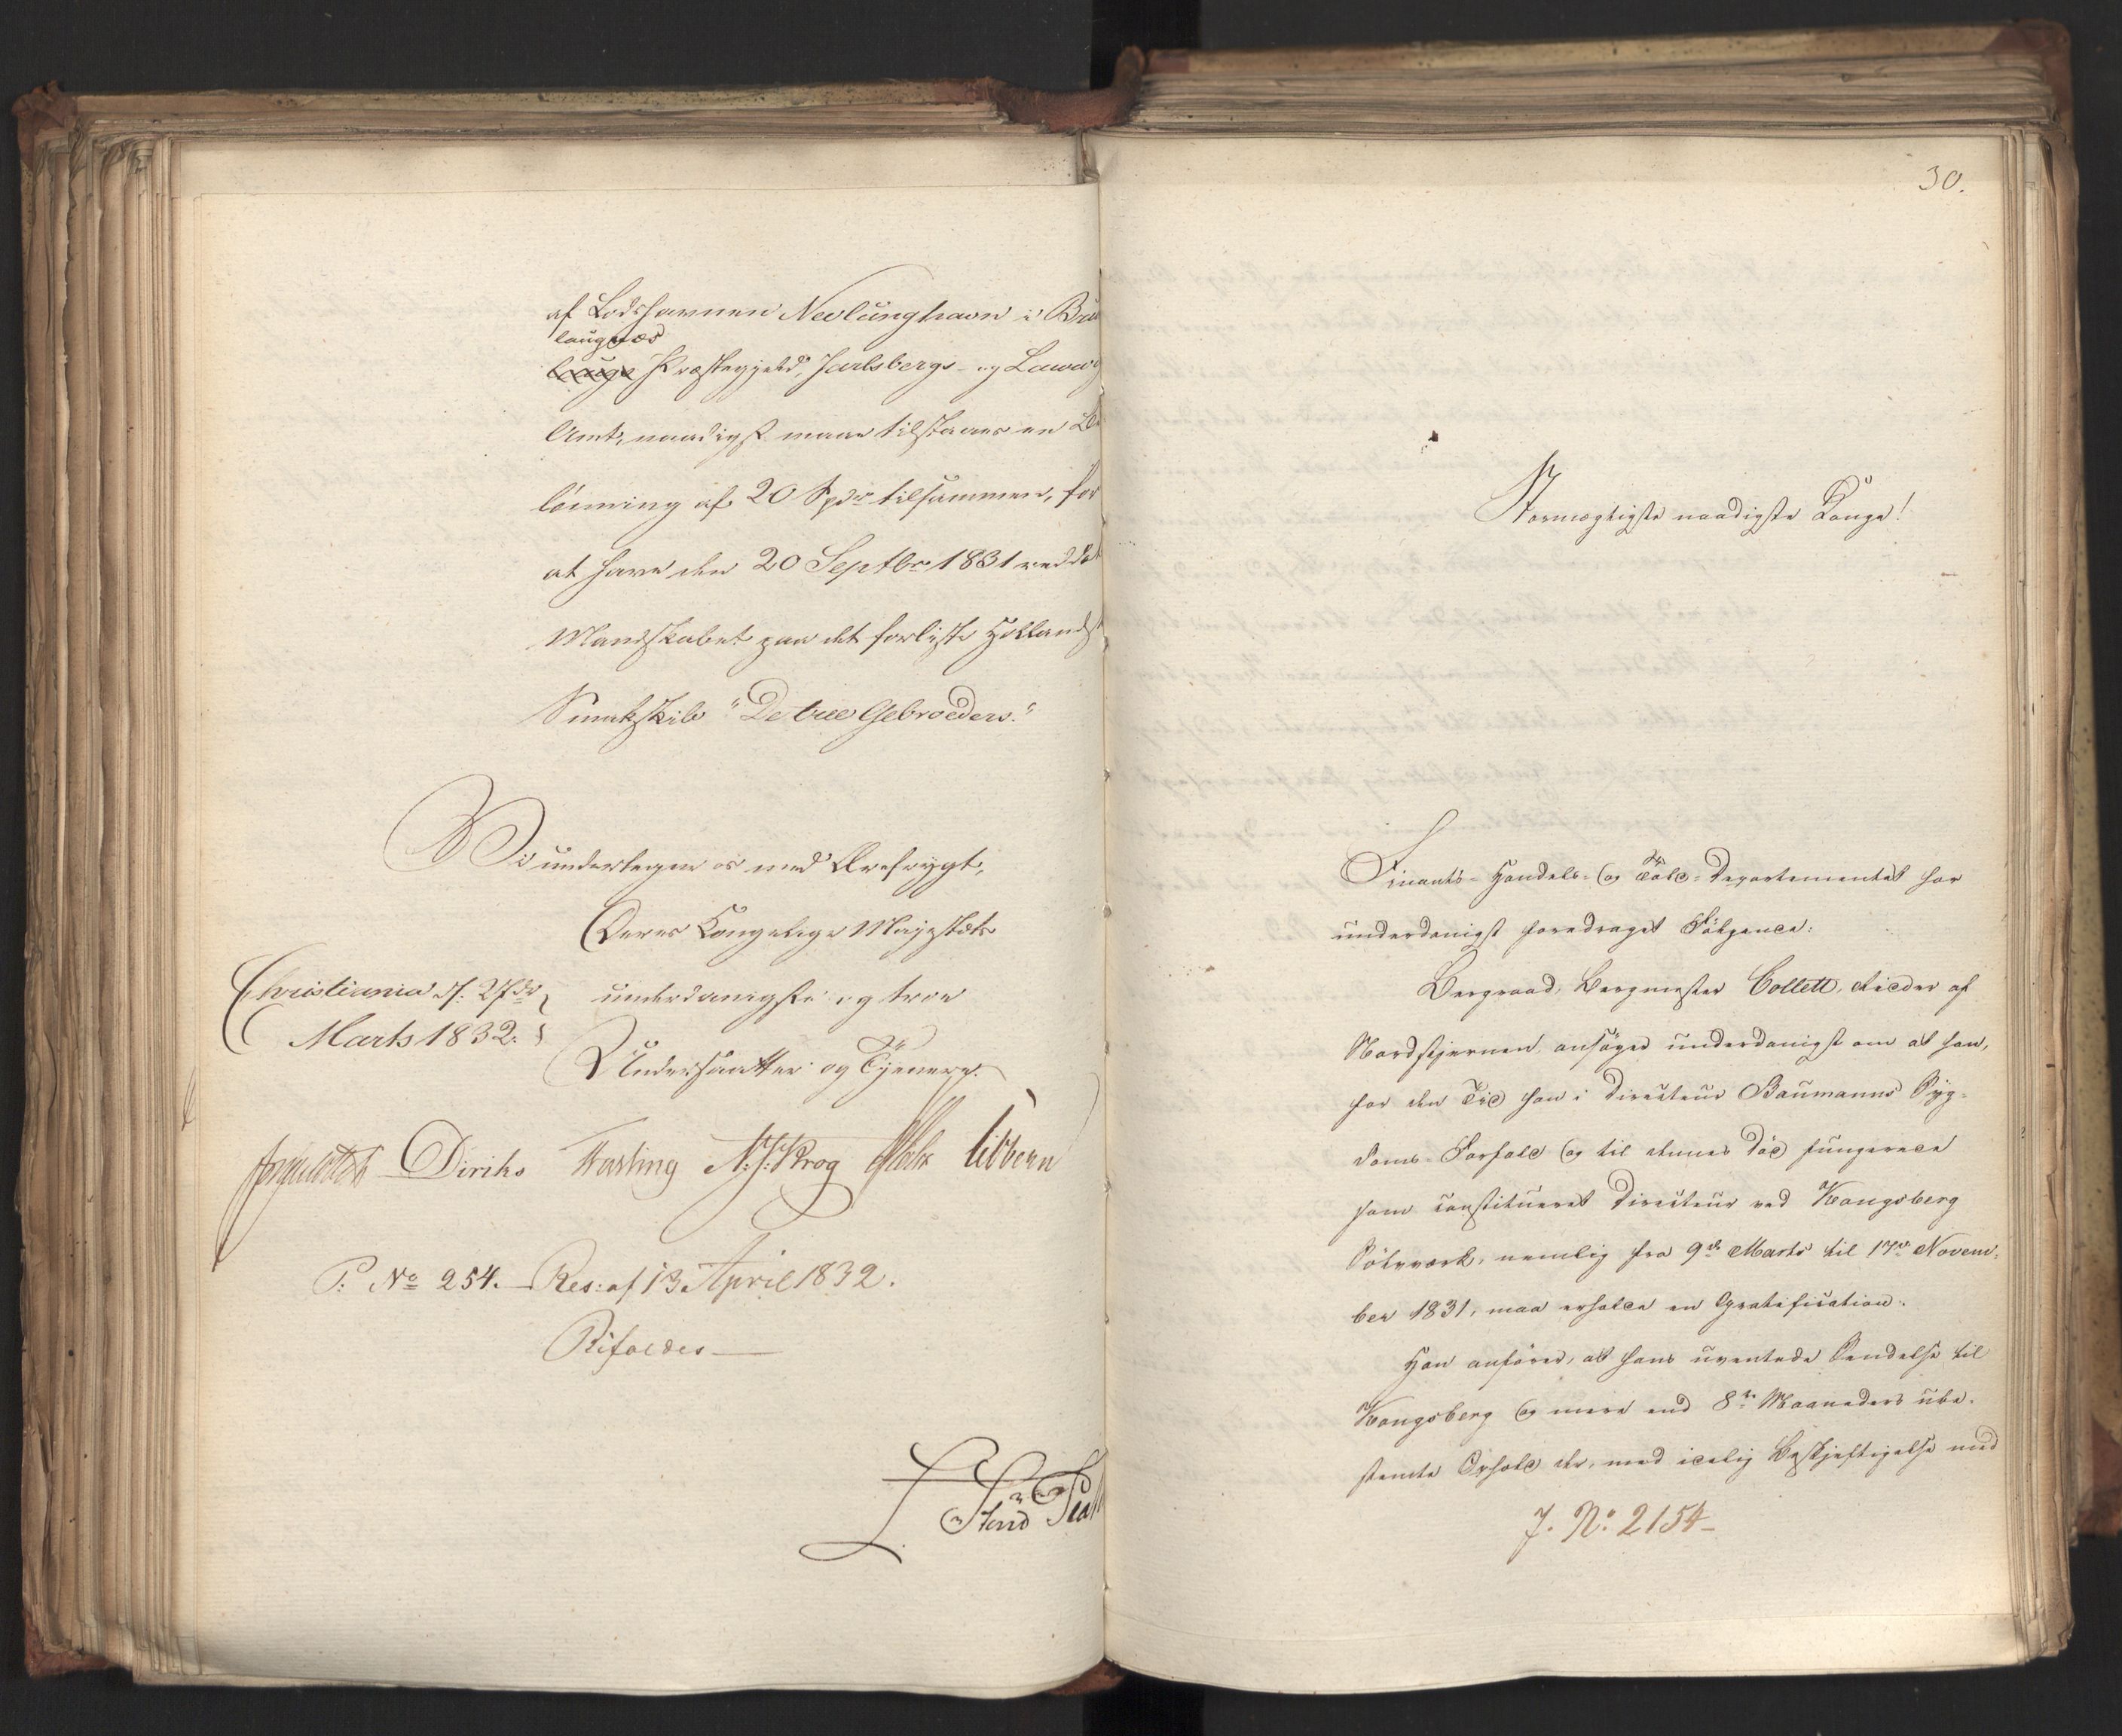 af Lodshavnen Nevlunghavn i Bru
laugnæs
lauge Præstegjeld, Jarlsbergs- og Laurvigs
Amt, naadigst maae tilstaaes en Be
lönning af 20 Spdr tilsammen, for
at have den 20 Septbr 1831 reddet
Mandskabet paa det forliste Hollandsk
Smakskib "De twee Gebroeders."
Vi underlegge os med Ærefrygt,
Deres Kongelige Majestæts
Christiania d. 27de
Marts 1832.
underdanigste og troe
Undersaatter og Tjenere.
Diriks Fasting N: J: Krog Holst Sibbern
P: No 254. Res: af 13 April 1832.
Bifaldes
30.
Stormægtigste naadigste Konge!
Finants- Handels- og Told-Departementet har
underdanigst foredraget Fölgende:
Bergraad, Bergmester Collett, Ridder af
Nordstjernen, ansöger underdanigst om at han,
for den Tid han i Directeur Baumanns Syg-
doms-Forfald og til dennes Död fungerede
som constitueret Directeur ved Kongsberg
Sölvværk, nemlig fra 9de Marts til 17de Novem-
ber 1831, maa erholde en Gratification.
Han anförer, at hans uventede Sendelse til
Kongsberg og mere end 8te Maaneders ube-
stemte Ophold der, med idelig Beskjæftigelse med
J. No: 2154